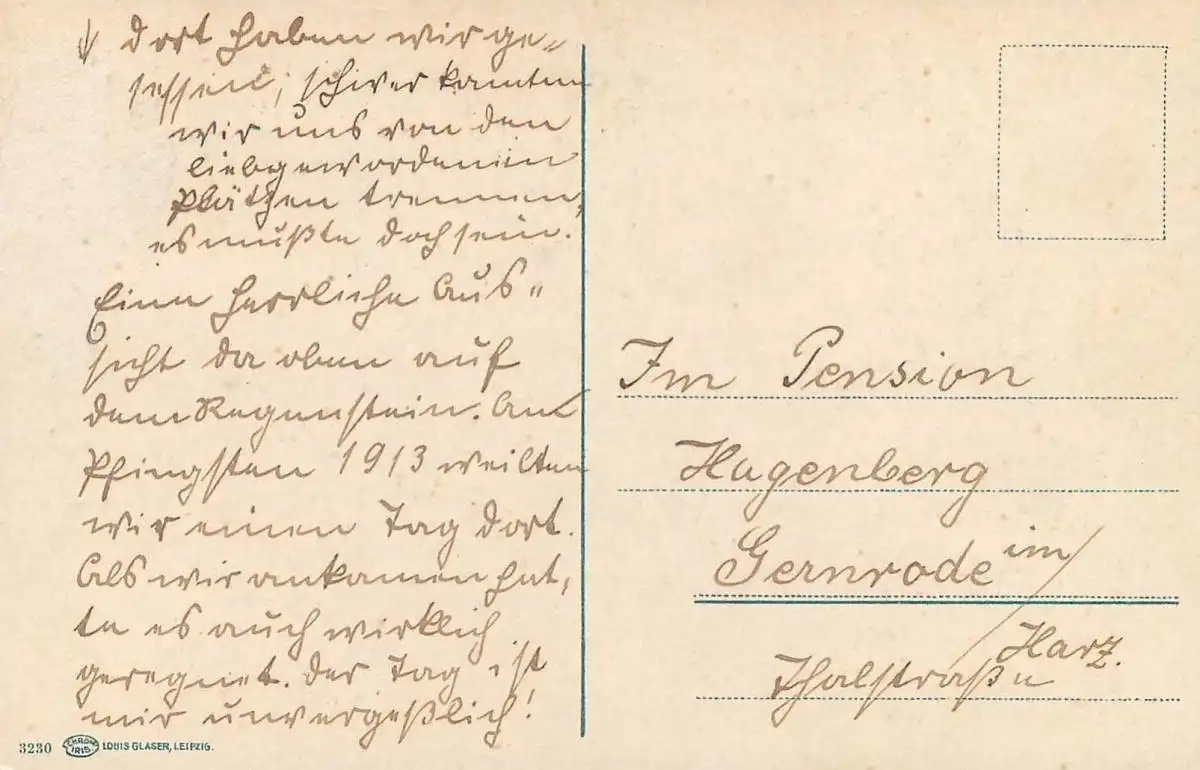 ↓ dort haben wir ge=
sessen; schwer konnten
wir uns von den
liebgewordenen
Plätzen trennen,
es mußte doch sein.
Eine herrliche Aus=
sicht da oben auf
dem Regenstein. An
Pfingsten 1913 weilten
wir einen Tag dort.
Als wir ankamen hat,
te es auch wirklich
geregnet. Der Tag ist
mir unvergeßlich!
3230 CHROM IRIS LOUIS GLASER, LEIPZIG.
Im Pension
Hagenberg
Gernrode im / Harz.
Thalstraße